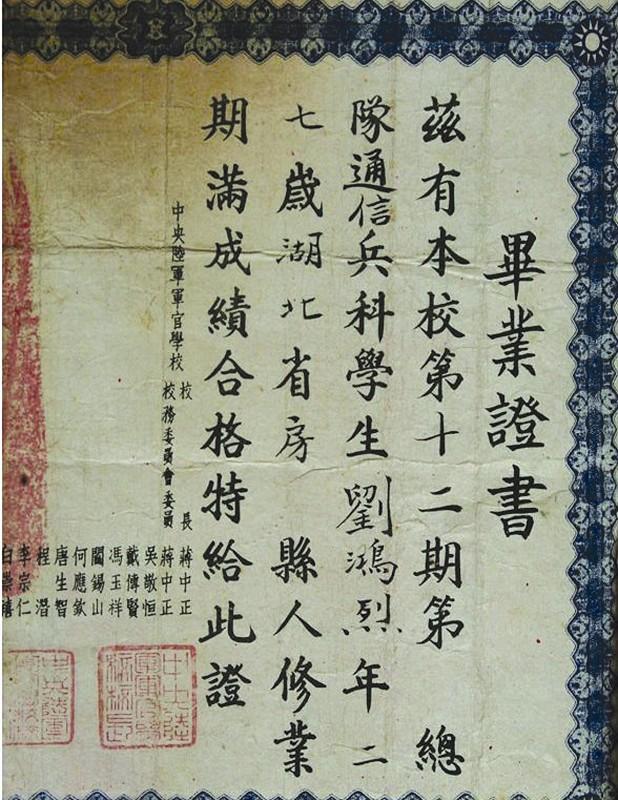 畢業證書
茲有本校第十二期第 總
隊通信兵科學生劉鴻烈年二
七歲湖北省房 縣人修業
期滿成績合格特給此證
中央陸軍軍官學校 校長 蔣中正
校務委員會委員 蔣中正
吳敬恒
戴傳賢
馮玉祥
閻錫山
何應欽
唐生智
程潛
李宗仁
白崇禧